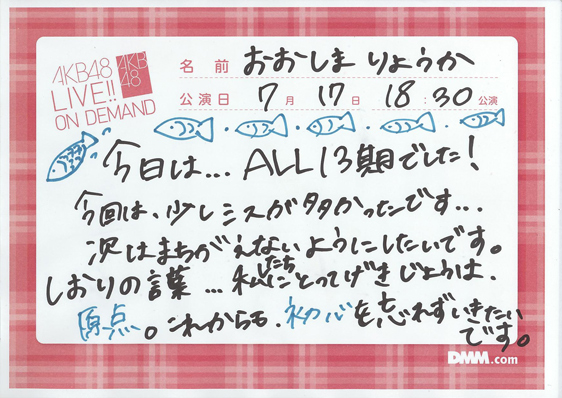 AKB48
LIVE!!
ON DEMAND
AKB
48
名前 おおしま りょうか
公演日 7月 17日 18:30公演
今日は... ALL13期でした!
今回は、少しミスが多かったです...
次はまちがえないようにしたいです。
しおりの言葉...私たちにとってげきじょうは、
原点。これからも、初心を忘れずいきたい
です。
DMM.com